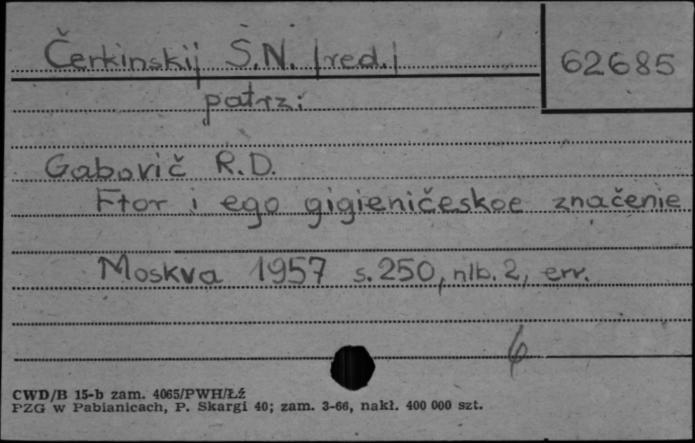 Čerkinskij S.N. /red./
62685
patrz:
Gabovič R.D.
Ftor i ego gigieničeskoe značenie
Moskva 1957 s. 250, nlb. 2, err.
6
CWD/B 15-b zam. 4065/PWH/Łź
PZG w Pabianicach, P. Skargi 40; zam. 3-66, nakł. 400 000 szt.